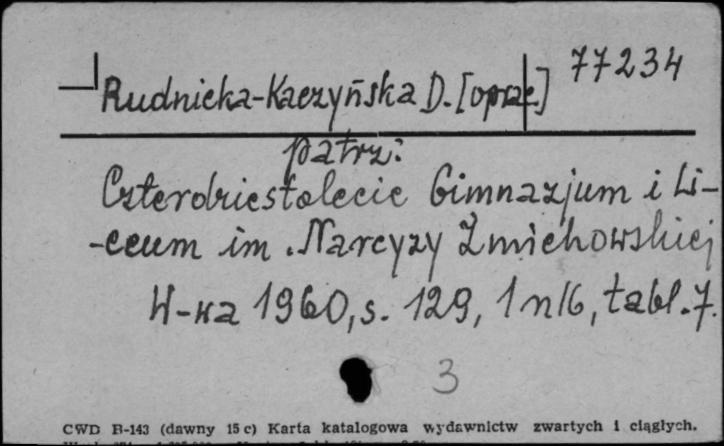 77234
Rudnicka-Kaczyńska D. [oprac.]
patrz:
Czterdziestolecie Gimnazjum i Li-
-ceum im. Narcyzy Żmichowskiej
W-wa 1960, s. 129, 1 nlb, tabl. 7.
3
CWD B-143 (dawny 15 c) Karta katalogowa wydawnictw zwartych i ciągłych.